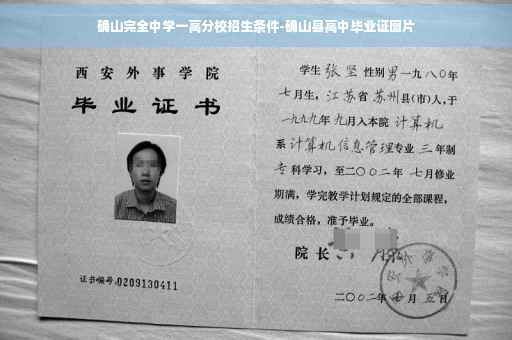 确山完全中学一高分校招生条件-确山县高中毕业证图片
西安外事学院
毕业证书
证书编号:0209130411
学生张坚性别男一九八〇年
七月生,江苏省苏州县(市)人,于
一九九九年九月入本院计算机
系计算机信息管理专业三年制
专科学习,至二〇〇二年七月修业
期满,学完教学计划规定的全部课程,
成绩合格,准予毕业。
院长
二〇〇二年七月五日